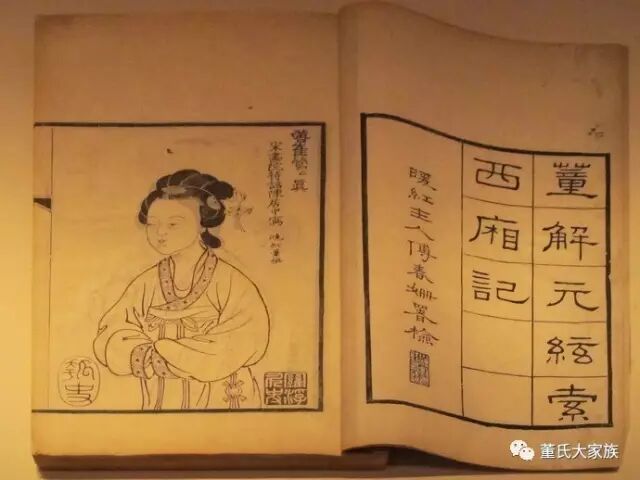 董解元絃索
西廂記
暖紅主人傅春姍署檢
崔鶯〻真
宋畫院待詔陳居中寫
董氏大家族